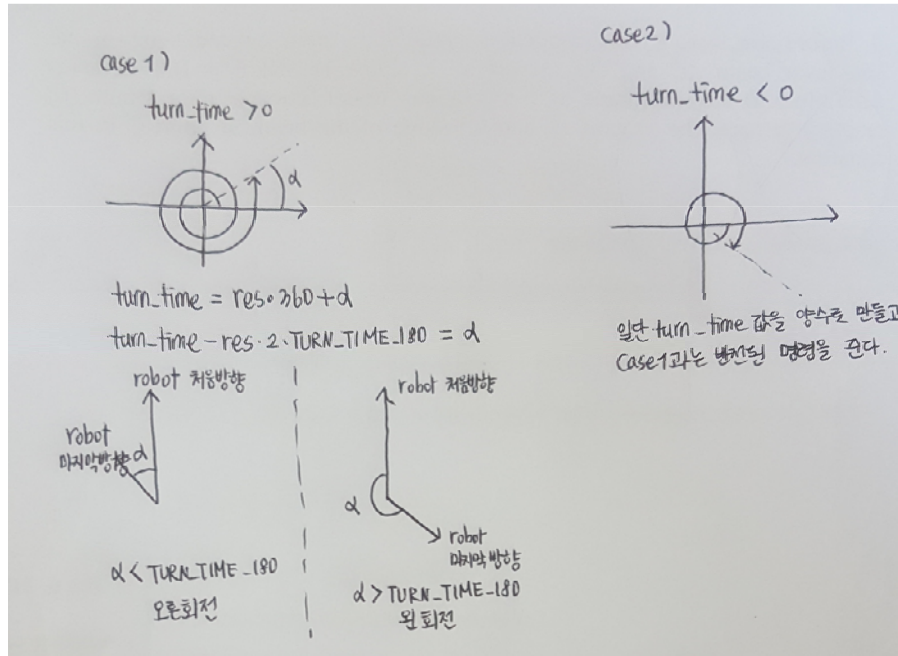 case 1)
turn_time > 0
α
turn_time = res·360+α
turn_time - res·2·TURN_TIME_180 = α
robot 처음방향
robot
마지막방향
α
α < TURN_TIME_180
오른회전
robot 처음방향
α
robot
마지막방향
α > TURN_TIME_180
왼회전
case2)
turn_time < 0
일단 turn_time 값을 양수로 만들고
case1과는 반전된 명령을 준다.